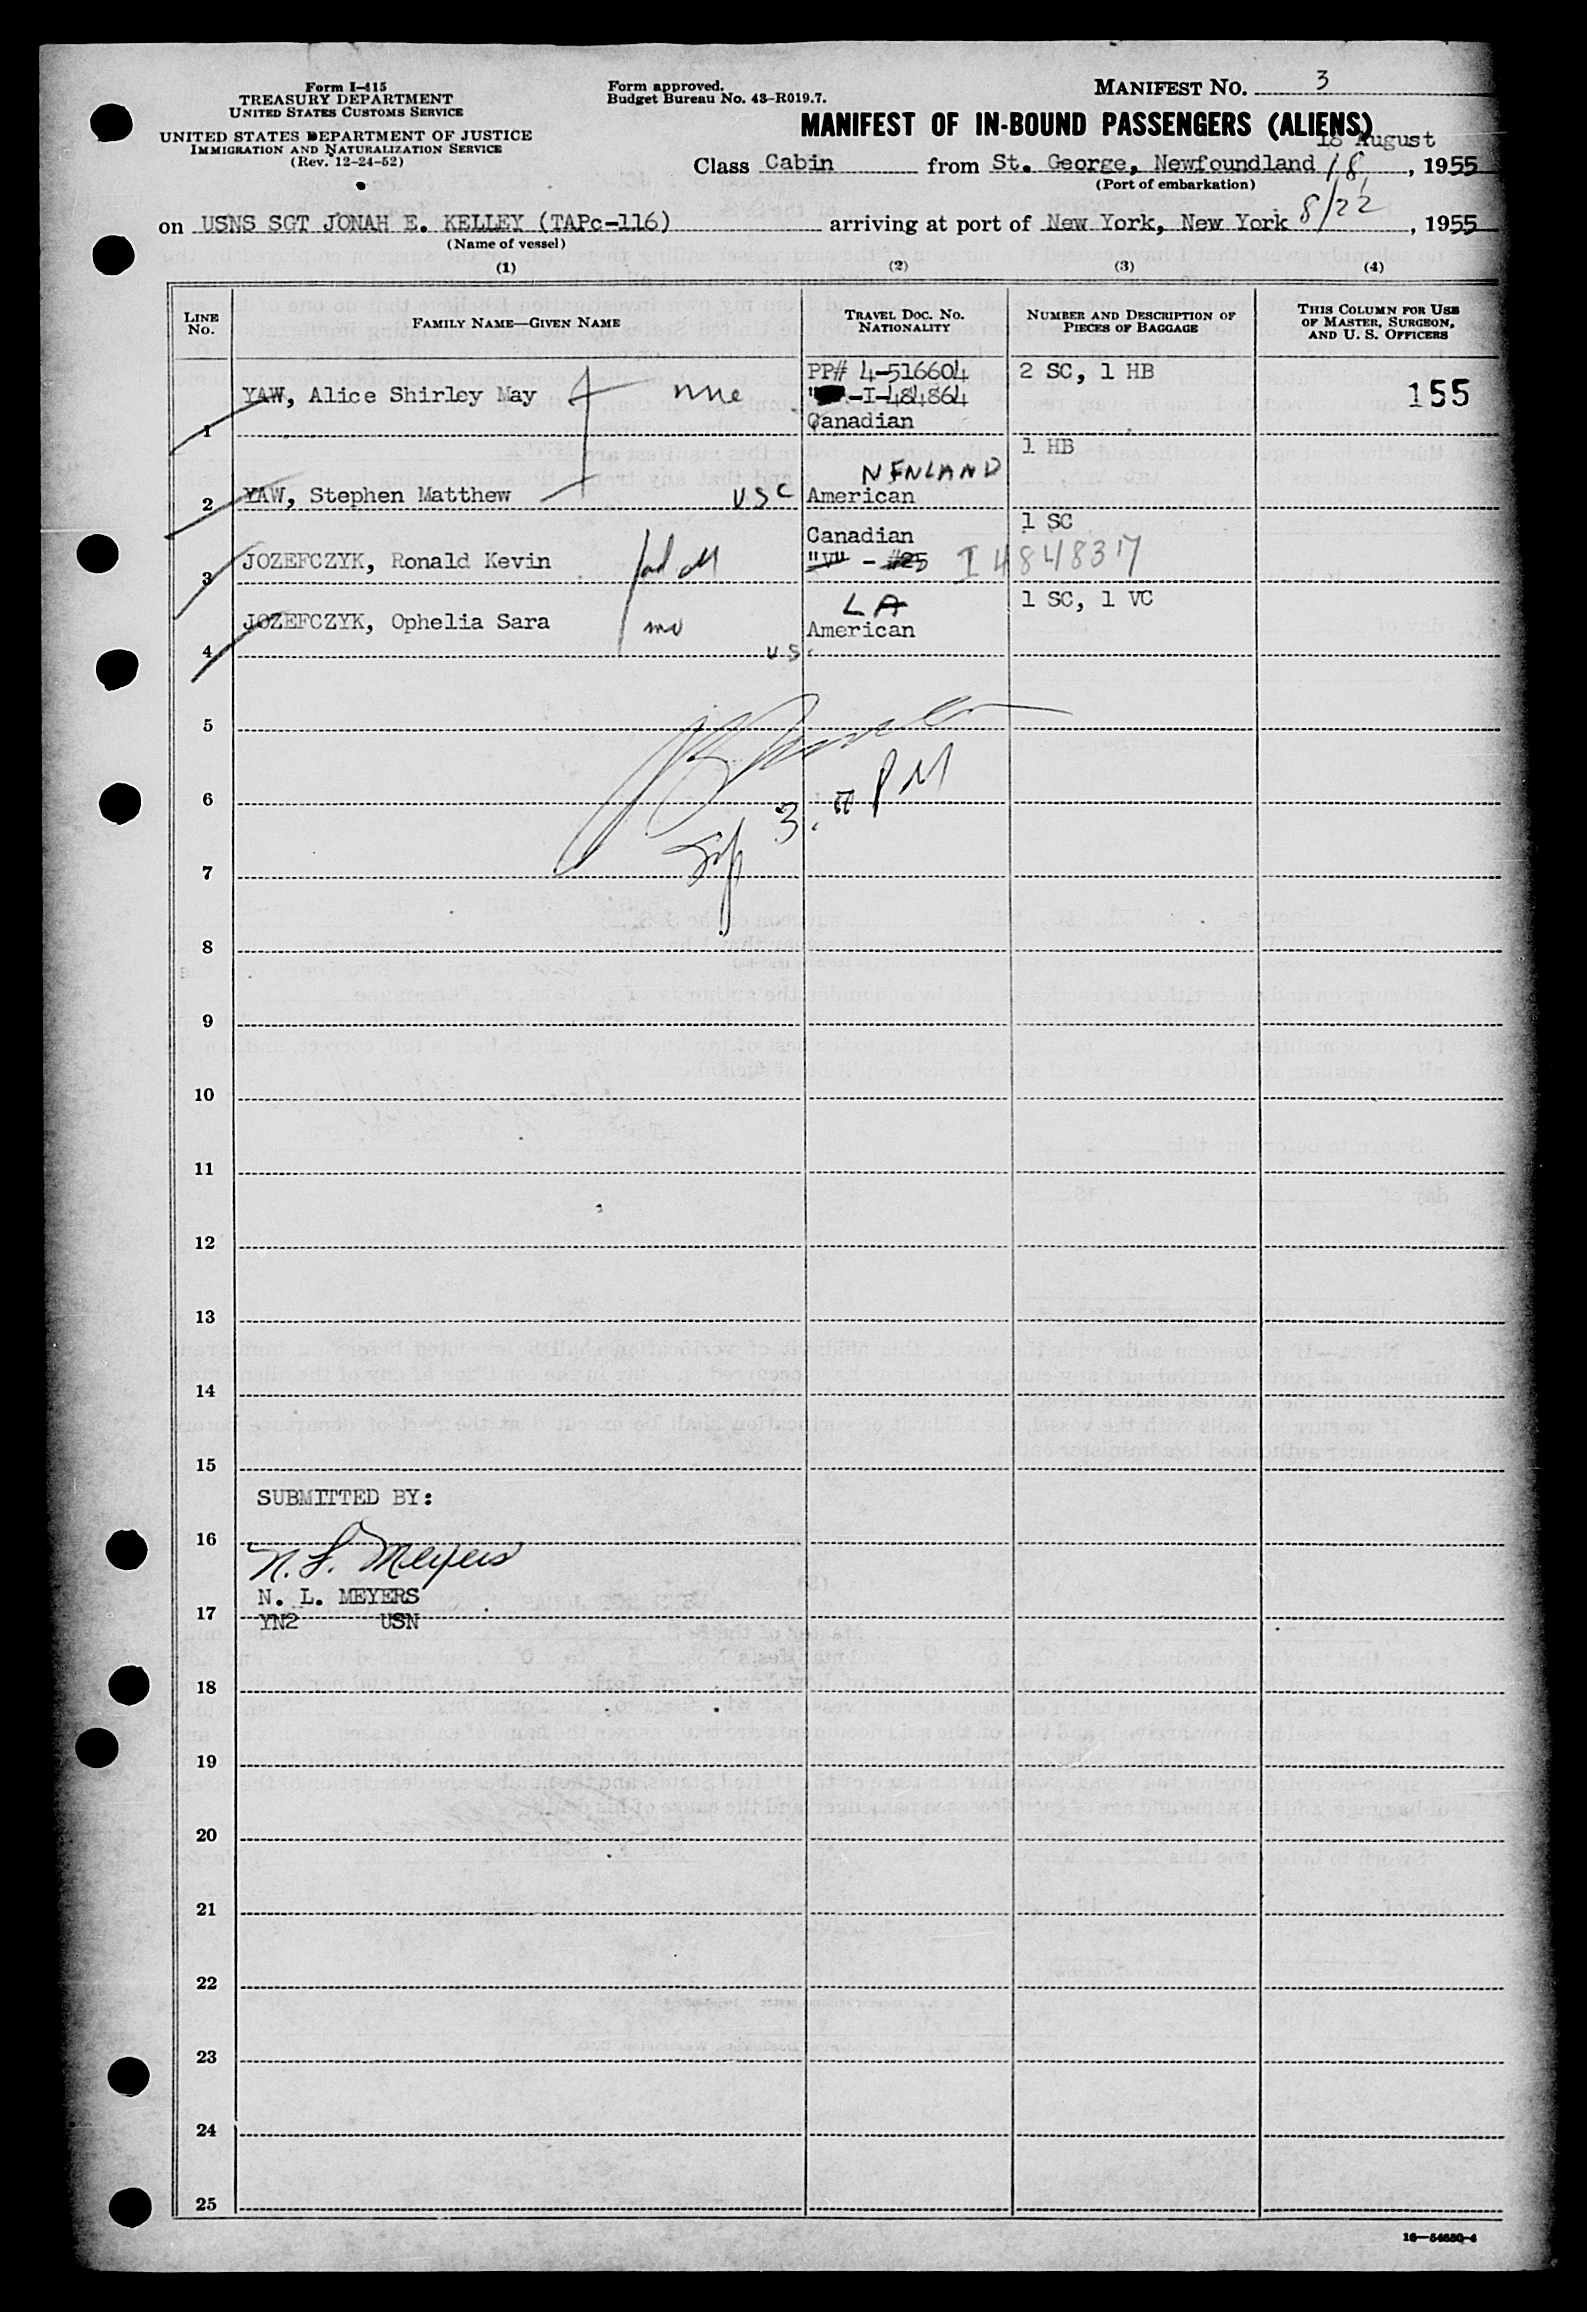 Form I-415
TREASURY DEPARTMENT
UNITED STATES CUSTOMS SERVICE
UNITED STATES DEPARTMENT OF JUSTICE
IMMIGRATION AND NATURALIZATION SERVICE
(Rev. 12-24-52)
Form approved.
Budget Bureau No. 43-R019.7.
MANIFEST NO. 3
MANIFEST OF IN-BOUND PASSENGERS (ALIENS)
18 August
Class Cabin from St. George, Newfoundland 18, 1955
(Port of embarkation)
on USNS SGT JONAH E. KELLEY (TAPc-116) arriving at port of New York, New York 8/22, 1955
(Name of vessel)
(1) (2) (3) (4)
LINE NO. FAMILY NAME—GIVEN NAME TRAVEL DOC. NO. NATIONALITY NUMBER AND DESCRIPTION OF PIECES OF BAGGAGE THIS COLUMN FOR USE OF MASTER, SURGEON, AND U. S. OFFICERS
PP# 4-516604 2 SC, 1 HB
YAW, Alice Shirley May -I-484864 155
1 Canadian
1 HB
NFNLAND
2 YAW, Stephen Matthew USC American
Canadian 1 SC
3 JOZEFCZYK, Ronald Kevin "V" - #25 I 484837
LA 1 SC, 1 VC
4 JOZEFCZYK, Ophelia Sara American
US
5
6
3. PM
7
8
9
10
11
12
13
14
15
SUBMITTED BY:
16
N. L. Meyers
N. L. MEYERS
17 YN2 USN
18
19
20
21
22
23
24
25
16—54650-4